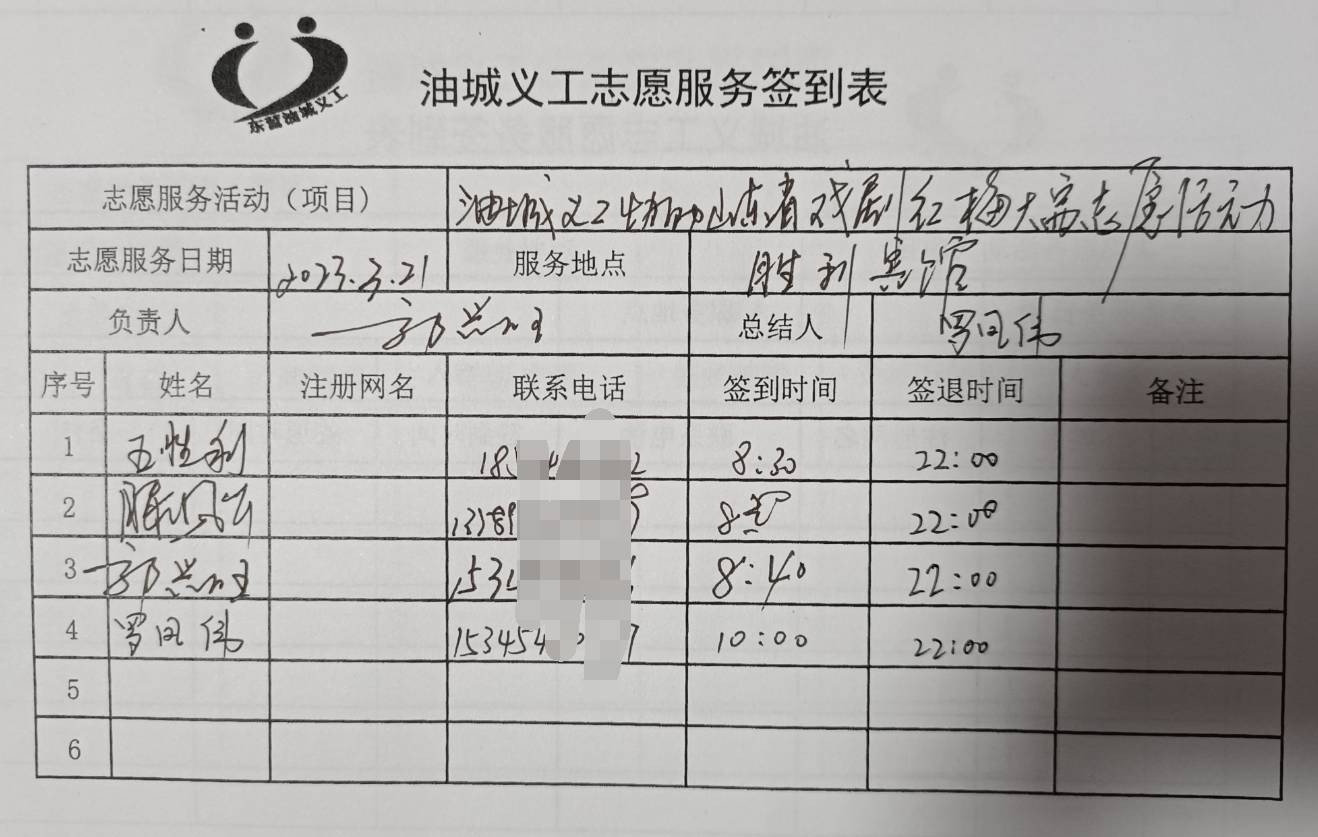 东营油城义工
油城义工志愿服务签到表
志愿服务活动（项目） 油城义工协助山东省戏剧红梅大赛志愿活动
志愿服务日期 2023.3.21 服务地点 胜利宾馆
负责人 总结人 罗同伟
序号 姓名 注册网名 联系电话 签到时间 签退时间 备注
1 王性利 8:30 22:00
2 22:00
3 8:40 22:00
4 罗同伟 10:00 22:00
5
6